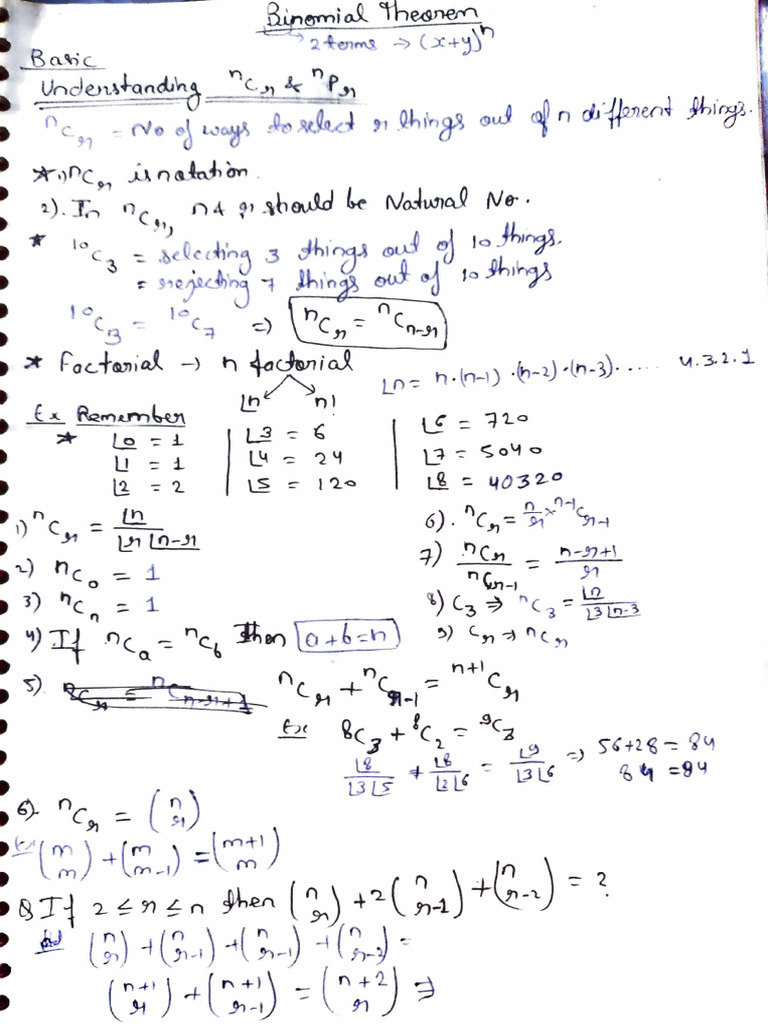 Binomial Theorem
2 terms → (x+y)ⁿ
Basic
Understanding ⁿCᵣ & ⁿPᵣ
ⁿCᵣ = No of ways to select r things out of n different things.
* 1) ⁿCᵣ is notation.
2). In ⁿCᵣ, n & r should be Natural No.
* ¹⁰C₃ = selecting 3 things out of 10 things.
= rejecting 7 things out of 10 things
¹⁰C₃ = ¹⁰C₇ ⇒ ⁿCᵣ = ⁿCₙ₋ᵣ
* Factorial → n factorial
∟n n!
∟n = n·(n-1)·(n-2)·(n-3)..... 4.3.2.1
Ex Remember
* ∟0 = 1 | ∟3 = 6 | ∟6 = 720
∟1 = 1 | ∟4 = 24 | ∟7 = 5040
∟2 = 2 | ∟5 = 120 | ∟8 = 40320
1) ⁿCᵣ = ∟n / ∟r ∟n-r
2) ⁿC₀ = 1
3) ⁿCₙ = 1
4) If ⁿCₐ = ⁿC_b Then a+b=n
6). ⁿCᵣ = n/r × ⁿ⁻¹Cᵣ₋₁
7) ⁿCᵣ / ⁿCᵣ₋₁ = n-r+1 / r
8) C₃ ⇒ ⁿC₃ = ∟n / ∟3 ∟n-3
9) Cᵣ ⇒ ⁿCᵣ
5). ⁿCᵣ = ⁿCₙ₋ᵣ₊₁ ⁿCᵣ + ⁿCᵣ₋₁ = ⁿ⁺¹Cᵣ
Ex 8C₃ + ⁸C₂ = ⁹C₃
∟8 / ∟3 ∟5 + ∟8 / ∟2 ∟6 = ∟9 / ∟3 ∟6 ⇒ 56+28 = 84
84 = 84
6). ⁿCᵣ = (n r)
Ex (m m) + (m m-1) = (m+1 m)
Q If 2 ≤ r ≤ n then (n r) + 2(n r-1) + (n r-2) = ?
(n r) + (n r-1) + (n r-1) + (n r-2) =
(n+1 r) + (n+1 r-1) = (n+2 r) ⇒